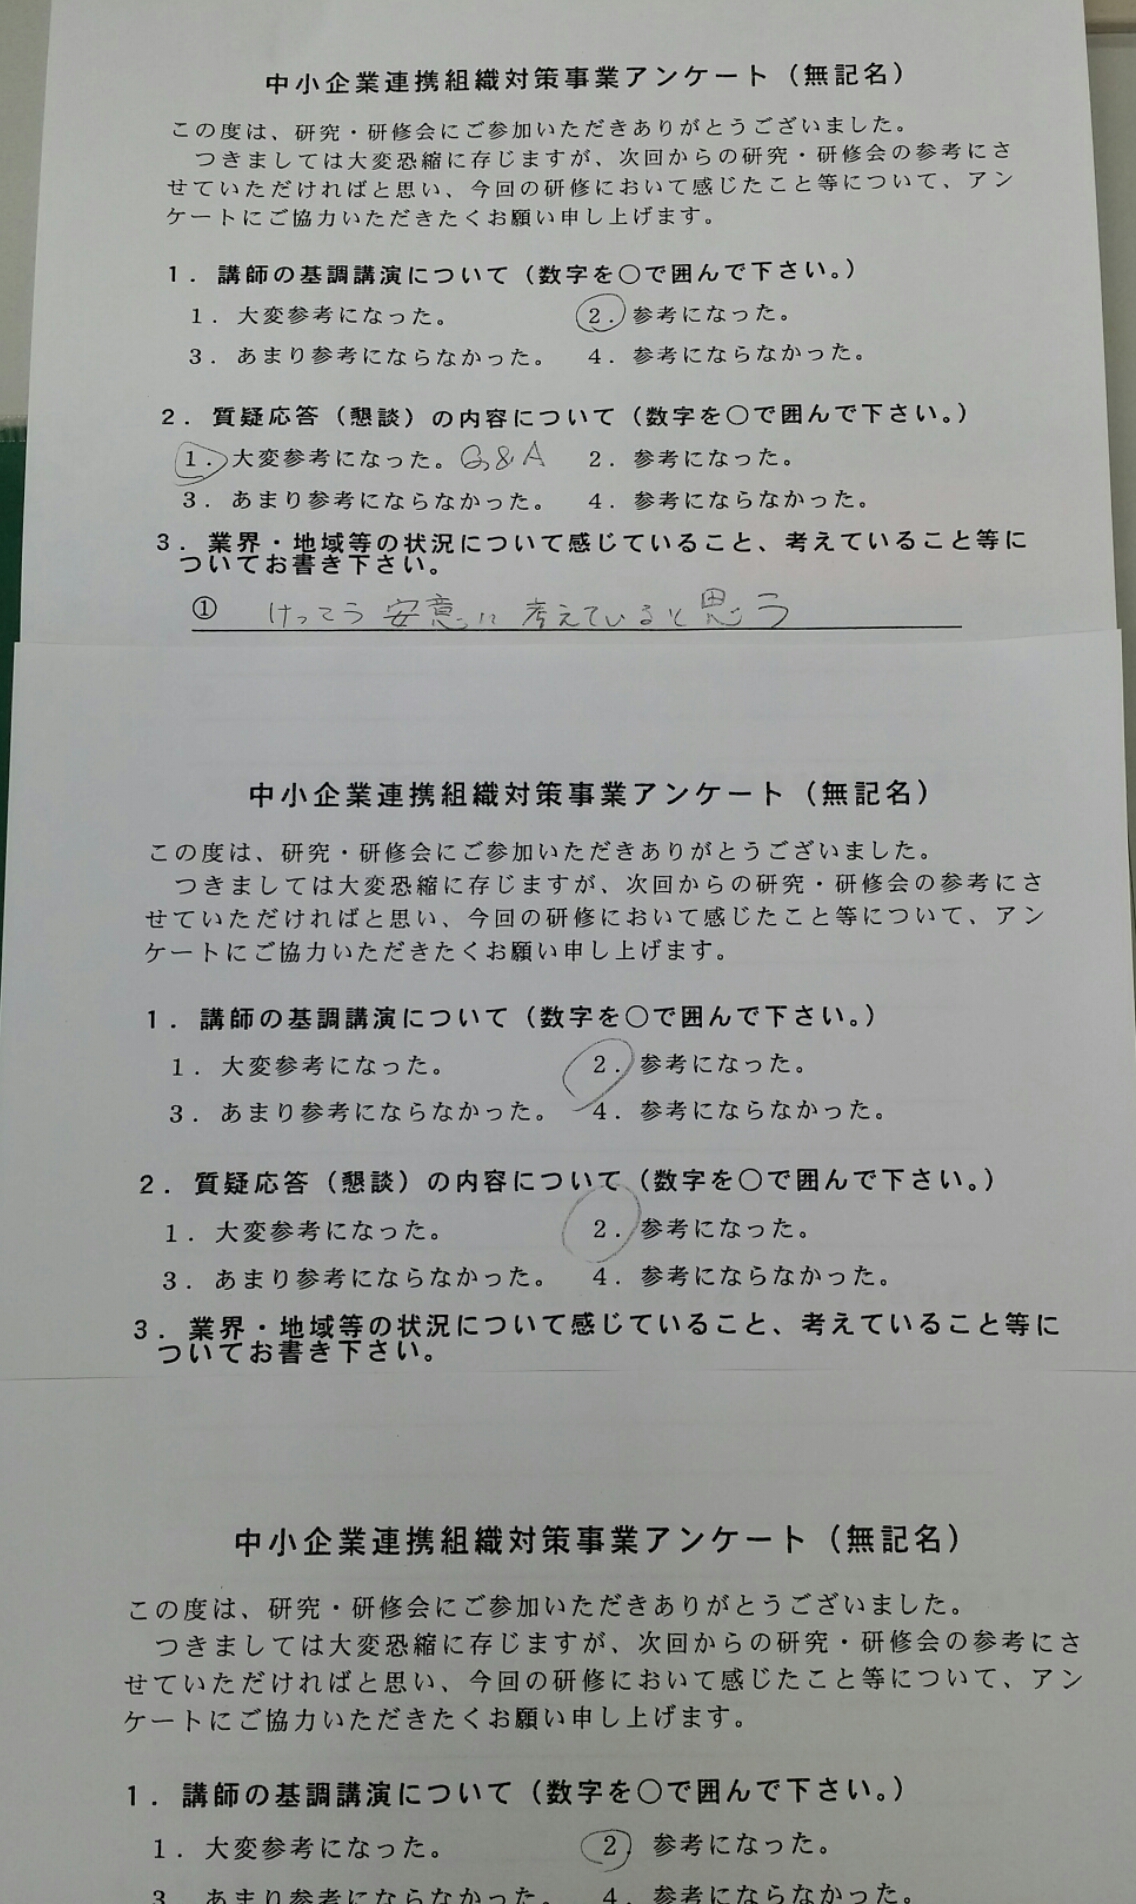 中小企業連携組織対策事業アンケート（無記名）
この度は、研究・研修会にご参加いただきありがとうございました。
つきましては大変恐縮に存じますが、次回からの研究・研修会の参考にさ
せていただければと思い、今回の研修において感じたこと等について、アン
ケートにご協力いただきたくお願い申し上げます。
１．講師の基調講演について（数字を○で囲んで下さい。）
１．大変参考になった。 ２．参考になった。
３．あまり参考にならなかった。 ４．参考にならなかった。
２．質疑応答（懇談）の内容について（数字を○で囲んで下さい。）
１．大変参考になった。Q&A ２．参考になった。
３．あまり参考にならなかった。 ４．参考にならなかった。
３．業界・地域等の状況について感じていること、考えていること等に
ついてお書き下さい。
① けってう 安意に 考えていると思う
中小企業連携組織対策事業アンケート（無記名）
この度は、研究・研修会にご参加いただきありがとうございました。
つきましては大変恐縮に存じますが、次回からの研究・研修会の参考にさ
せていただければと思い、今回の研修において感じたこと等について、アン
ケートにご協力いただきたくお願い申し上げます。
１．講師の基調講演について（数字を○で囲んで下さい。）
１．大変参考になった。 ２．参考になった。
３．あまり参考にならなかった。 ４．参考にならなかった。
２．質疑応答（懇談）の内容について（数字を○で囲んで下さい。）
１．大変参考になった。 ２．参考になった。
３．あまり参考にならなかった。 ４．参考にならなかった。
３．業界・地域等の状況について感じていること、考えていること等に
ついてお書き下さい。
中小企業連携組織対策事業アンケート（無記名）
この度は、研究・研修会にご参加いただきありがとうございました。
つきましては大変恐縮に存じますが、次回からの研究・研修会の参考にさ
せていただければと思い、今回の研修において感じたこと等について、アン
ケートにご協力いただきたくお願い申し上げます。
１．講師の基調講演について（数字を○で囲んで下さい。）
１．大変参考になった。 ２ 参考になった。
３．あまり参考にならなかった。 ４．参考にならなかった。